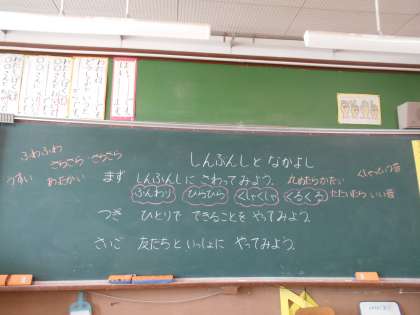 しんぶんしと なかよし
ふわふわ
さらさら さらさら
うすい あったかい
まず しんぶんしに さわってみよう。
丸めたらかたい
くしゃくしゃ音
ふんわり ひらひら くしゃくしゃ くるくる
たたいたら いい音
つぎ ひとりで できることを やってみよう。
さいご 友だちと いっしょに やってみよう。